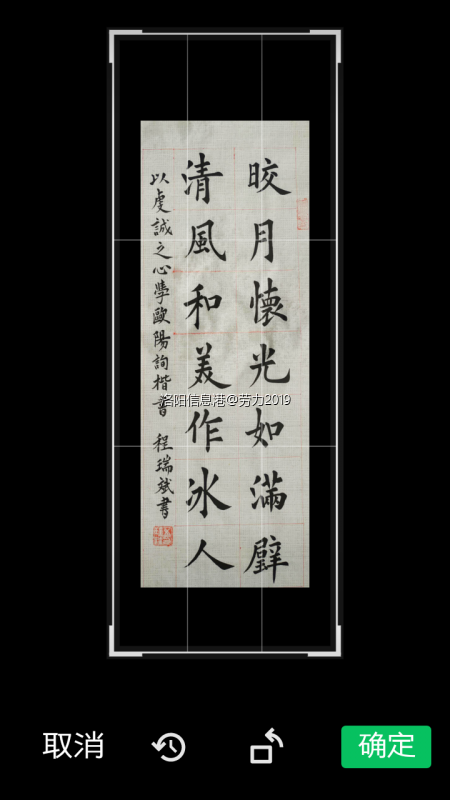 皎月懷光如滿璧
清風和美作冰人
以虔誠之心學歐陽詢楷書 程瑞斌書
洛阳信息港@劳力2019
取消
确定